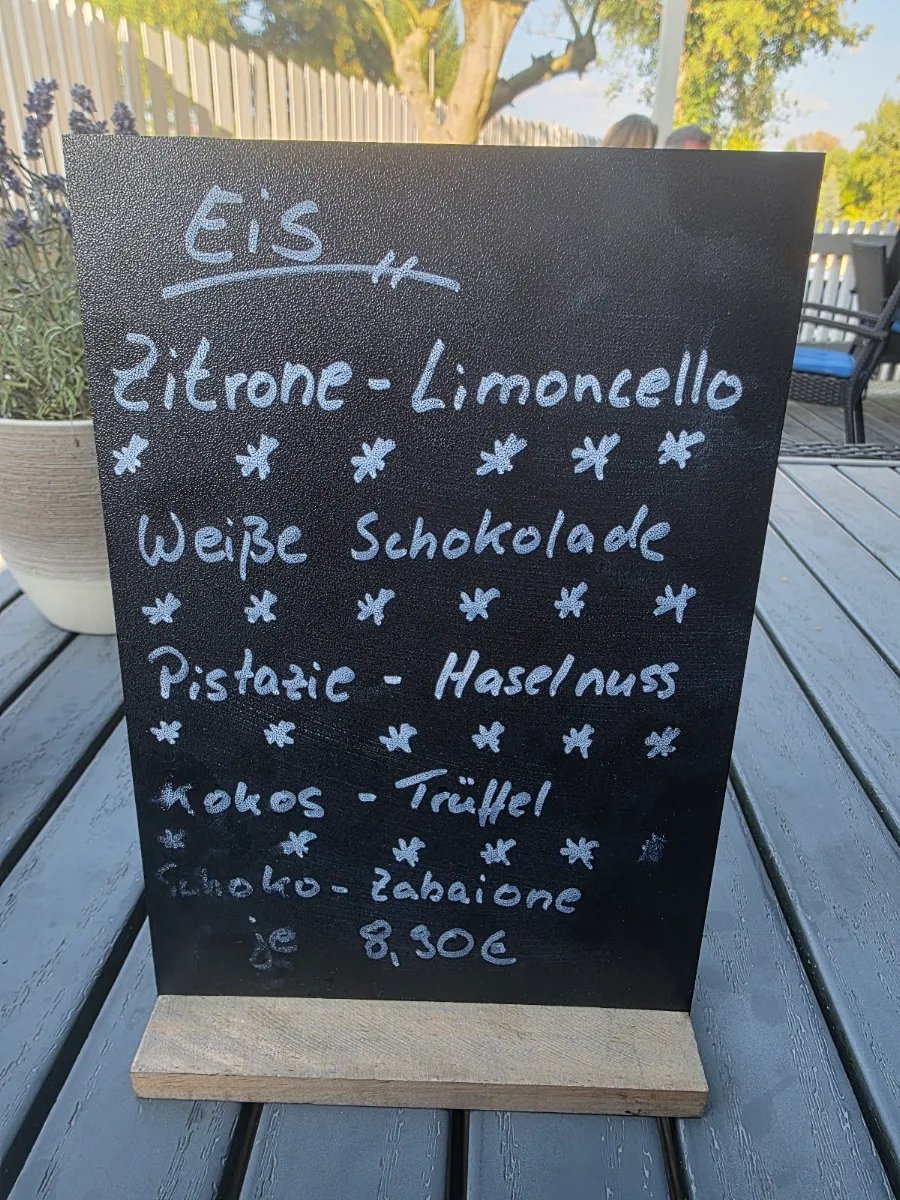 Eis
Zitrone - Limoncello
* * * * * *
Weiße Schokolade
* * * * * *
Pistazie - Haselnuss
* * * * * *
Kokos - Trüffel
* * * * * *
Schoko - Zabaione
je 8,90€